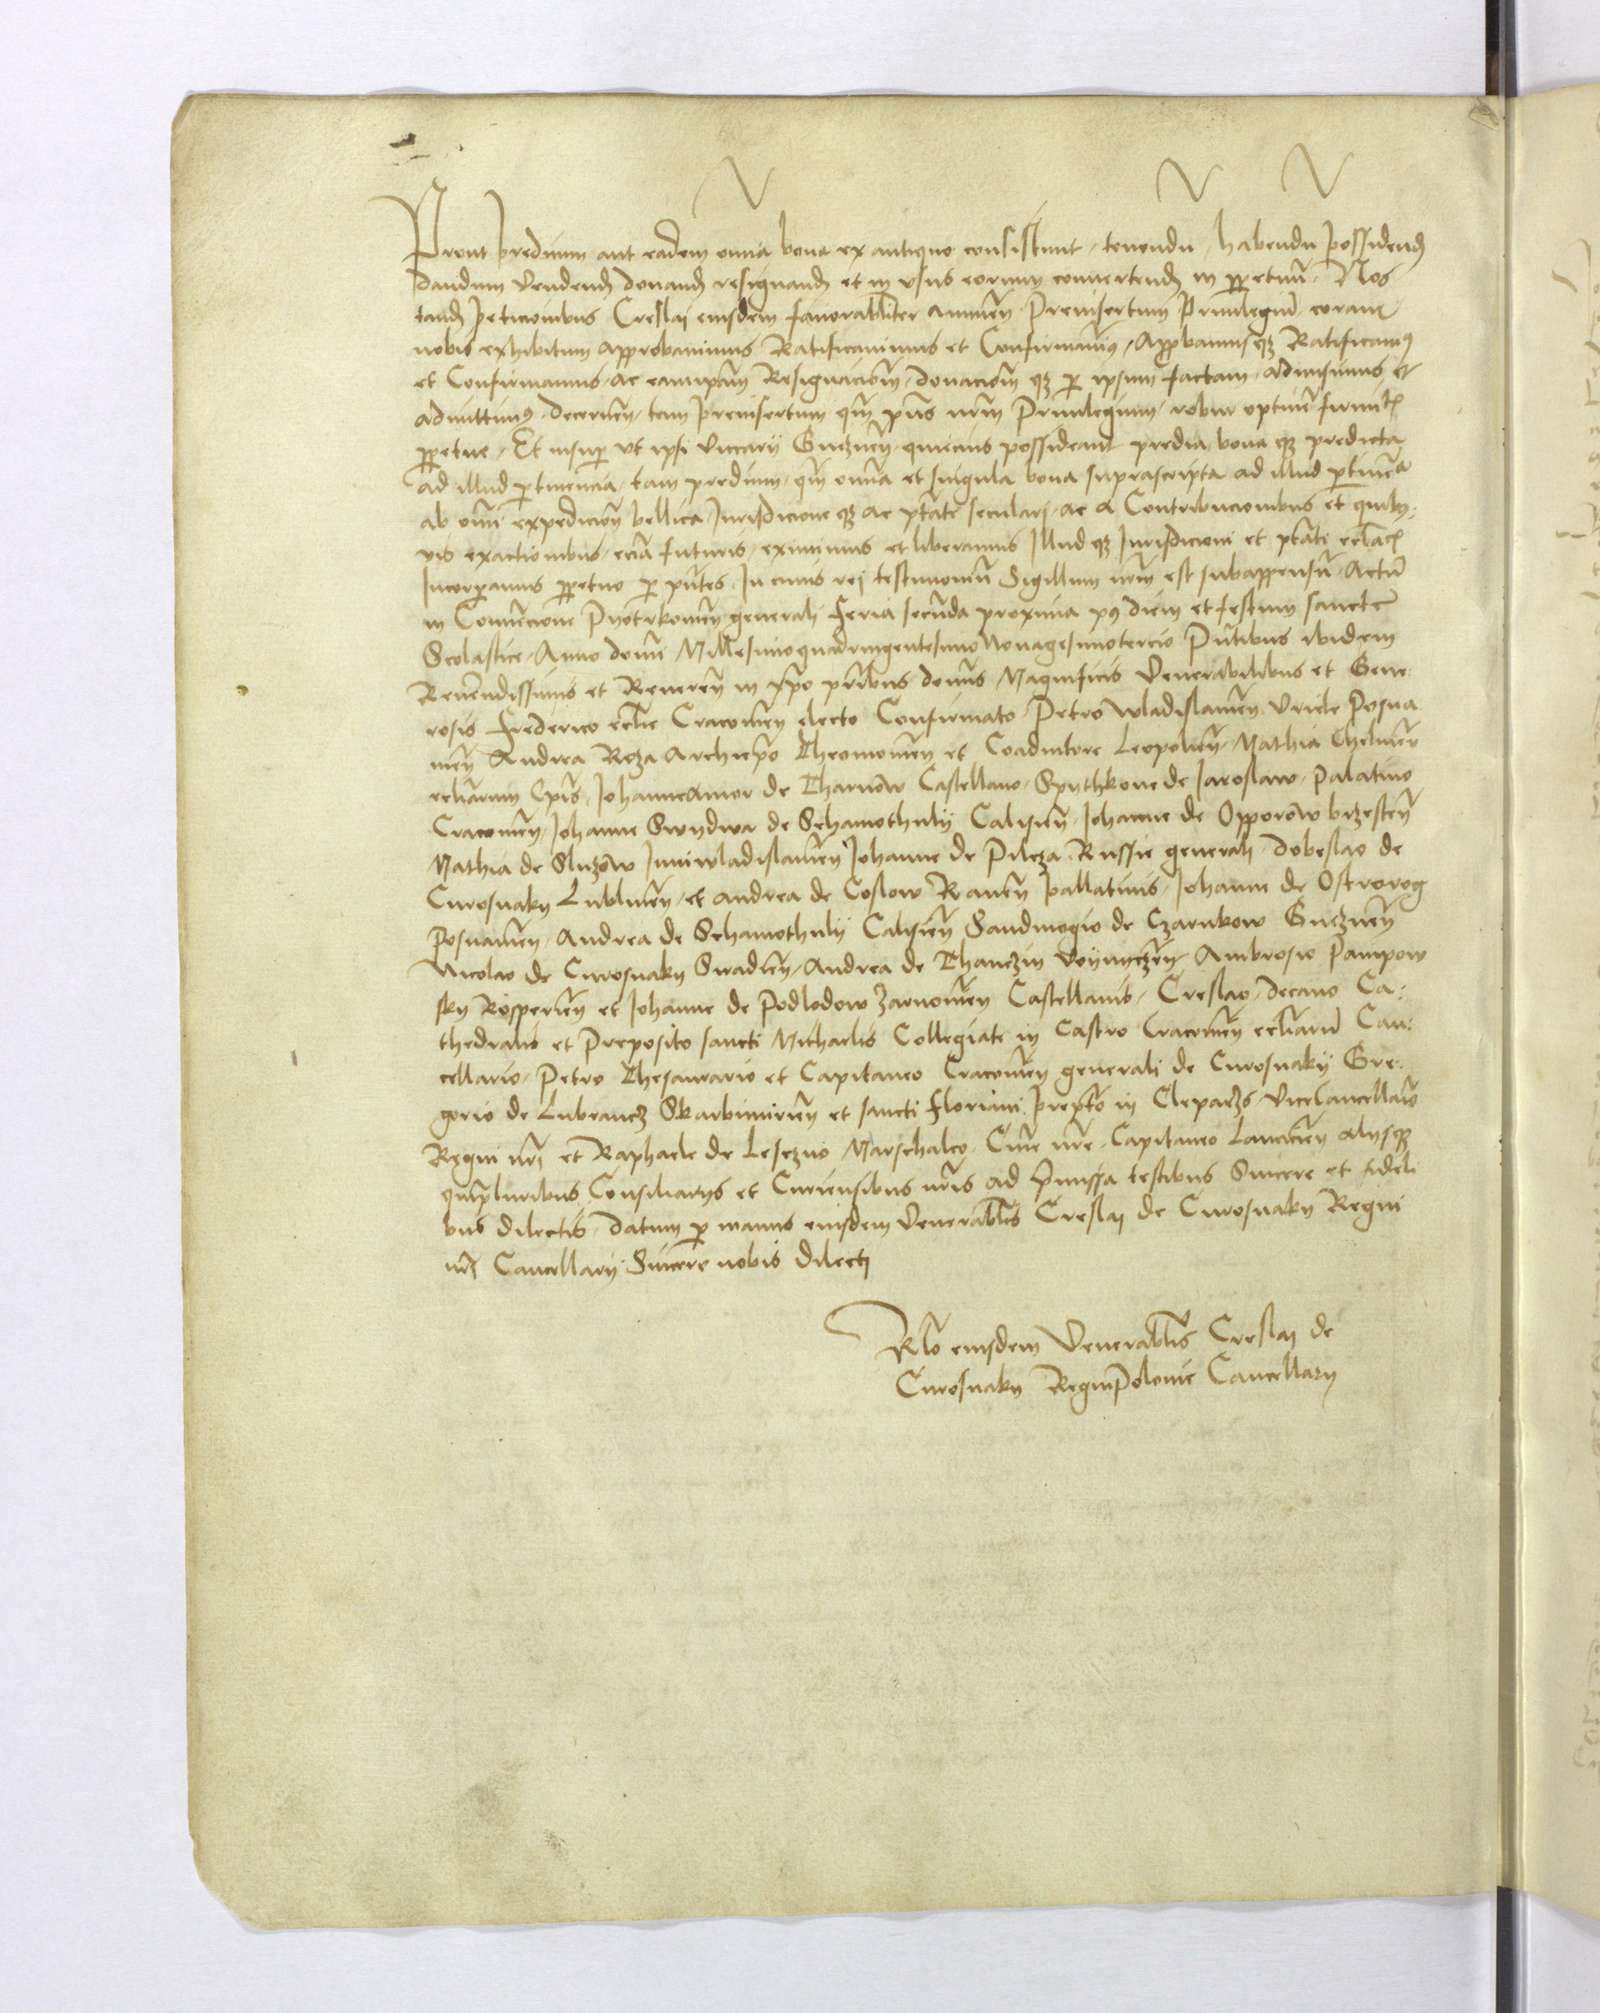 Prout predium aut eadem omnia bona ex antiquo consistunt, tenendu, habendu possidend
dandum Vendend donand resignand et in vsus eorum conuertend in ppetuu. Nos
tand peticionibus Creslaj eiusdem fauorabiliter annuen Preinsertum Priuilegiu coram
nobis exhibitum approbauimus Ratificauimus et Confirmauim9, Appbamusqz Ratificam9
et Confirmamus, ac eam ipsam Resignacionem, donacionem qz p ipsum factam, admisimus et
admittim9, decernen, tam preinsertum qm pns nrm Priuilegium, robur optine firmit
ppetue, Et insup vt ipsi Viccarij Gnezneñ quiecius possideant predia bona qz predicta
ad illud ptinencia, tam predium, qm omia et singula bona suprascripta ad illud ptinecia
ab omi expedicion bellica, Jurisdicione qz ac ptate seculari, ac a Contribucionibus et quibus
vis exactionibus, ecia futuris, eximimus et liberamus Illud qz Jurisdicioni et ptati
Incorporamus ppetuo p pntes. In cuius rej testimoniu Sigillum nrm est subappensu, Actu
in Conuencione Pyotrkouien generali Feria secunda proxima p9 diem et festum sancte
Scolastice, Anno domi Millesimoquadringentesimo Nonagesimotercio Pntibus ibidem
Reuerendissimis et Reueren in xpo pribus domis Magnificis Venerabilibus et Gene:
rosis Frederico ecclie Cracouien electo Confirmato, Petro Wladislauien, Vriele Posna
nien Andrea Roza Archiepo Coadiutore Leopolien, Mathia
ecliarum Epis, Johanne Amor de Tharnow Castellano, Spythkone de Jaroslaw, Palatino
Cracouien, Johanne Swydwa de Schamothuly Calisien, Johanne de Opporow brzesten
Mathia de Sluzow Juniwladislauien Johanne de Pilcza, Russie generali, Dobeslao de
Curoswaky Lublinen, et Andrea de Coslow Rauen pallatinis, Johanne de Ostrorog
Posnanien, Andrea de Schamothuly Calisien Sandiuogio de Czarnkow Gneznen
Nicolao de Curoswaky Siradien, Andrea de Thanczin Voyniczen, Ambrosio Pampow
sky Rosperien et Johanne de Podlodow Zarnowien Castellanis, Creslao, decano Ca:
thedralis et Preposito sancti Michaelis Collegiate in Castro Cracouien ecliaru Can:
cellario, Petro Thesaurario et Capitaneo Cracouien generali de Curoswaky Gre:
gorio de Lubrancz Skarbimirien et sancti Floriani prepto in Cleparzs Vicecancellario
Regni nri et Raphaele de Lesczno Marschalco, Curie nre, Capitaneo Lancicien alijsqz
qmpluribus Consiliarijs et Curiensibus nris ad Pmissa testibus Sincere et fideli
bus dilectis, Datum p manus eiusdem Venerabilis Creslaj de Curoswaky Regni
nri Cancellarij Sincere nobis Dilecti
Rlo eiusdem Venerabilis Creslaj de
Curoswaky Regni Polonie Cancellarij